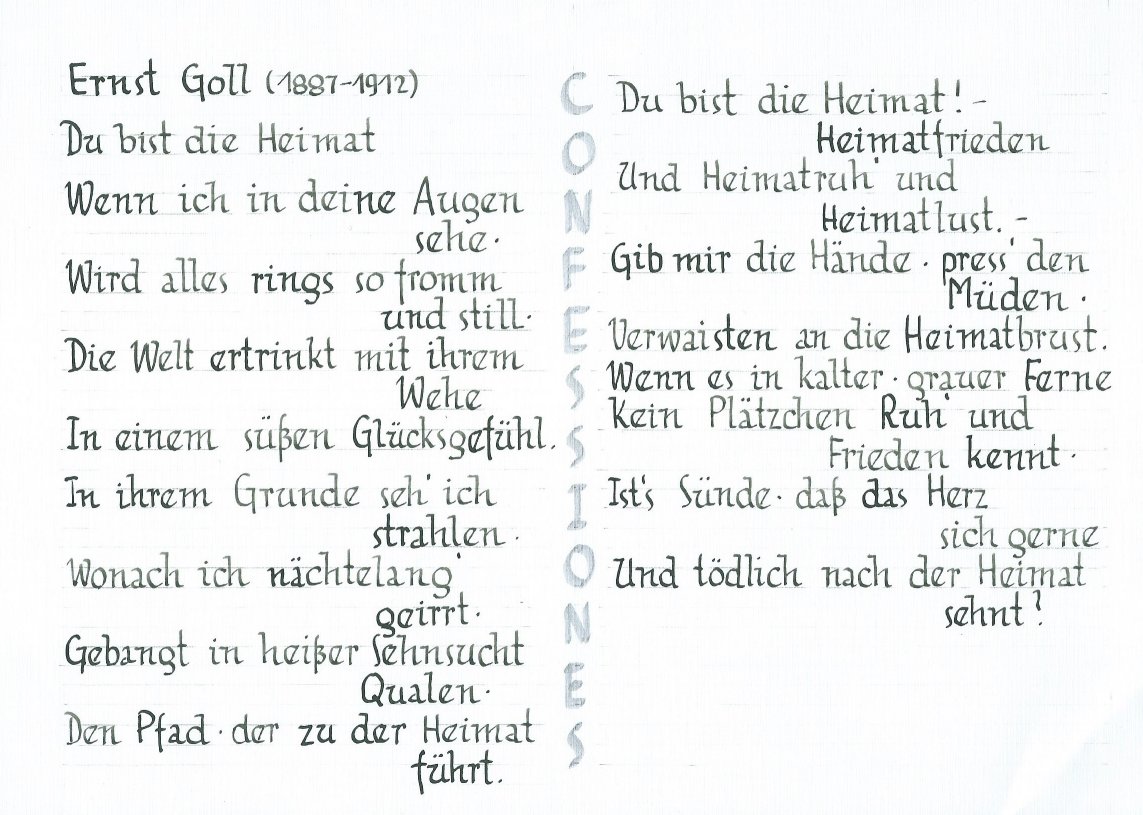 Ernst Goll (1887-1912)
Du bist die Heimat
Wenn ich in deine Augen
sehe·
Wird alles rings so fromm
und still·
Die Welt ertrinkt mit ihrem
Wehe
In einem süßen Glücksgefühl.
In ihrem Grunde seh' ich
strahlen·
Wonach ich nächtelang'
geirrt·
Gebangt in heißer Sehnsucht
Qualen·
Den Pfad· der zu der Heimat
führt.
CONFESSIONES
Du bist die Heimat! -
Heimatfrieden
Und Heimatruh' und
Heimatlust. -
Gib mir die Hände· press' den
Müden·
Verwaisten an die Heimatbrust.
Wenn es in kalter· grauer Ferne
Kein Plätzchen Ruh' und
Frieden kennt·
Ist's Sünde· daß das Herz
sich gerne
Und tödlich nach der Heimat
sehnt?